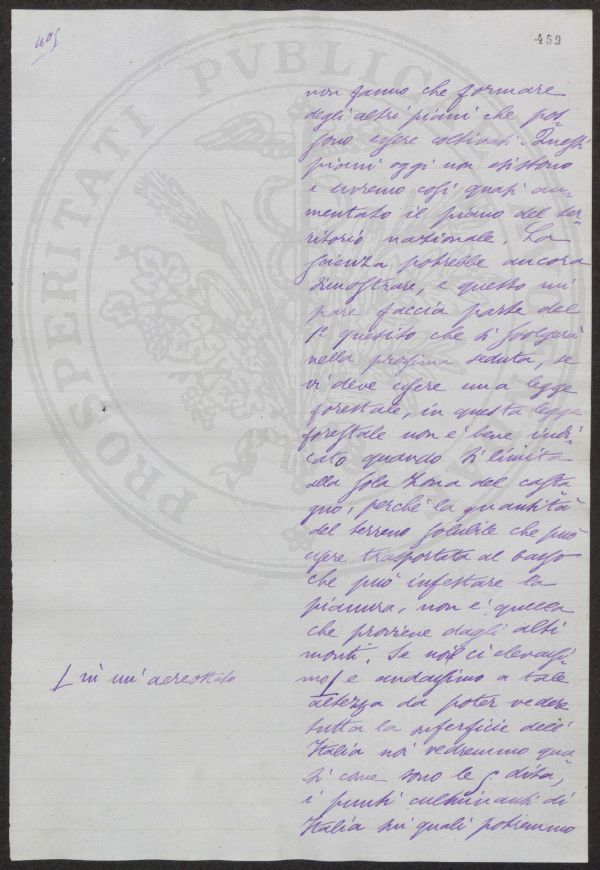 405
459
non fanno che formare
degli altri piani che pos-
sono essere coltivati. Questi
piani oggi non esistono
e avremo così quasi au-
mentato il piano del ter-
ritorio nazionale. La
scienza potrebbe ancora
dimostrare, e questo mi
pare faccia parte del
1° quesito che si svolgerà
nella prossima seduta, se
vi deve essere una legge
forestale, in questa legge
forestale non e' bene indi-
cato quando si limita
alla sola zona del casta-
gno, perché la quantità
del terreno solubile che può
essere trasportata al basso
che può infestare la
pianura, non e' quella
che proviene dagli alti
monti. Se noi ci elevassi-
mo [ e andassimo a tale
[ in un' aereostato
altezza da poter vedere
tutta la superficie dell'
Italia noi vedremmo qua-
si come sono le 5 dita,
i punti culminanti di
Italia sui quali potremmo
PROSPERITATI PVBLIC